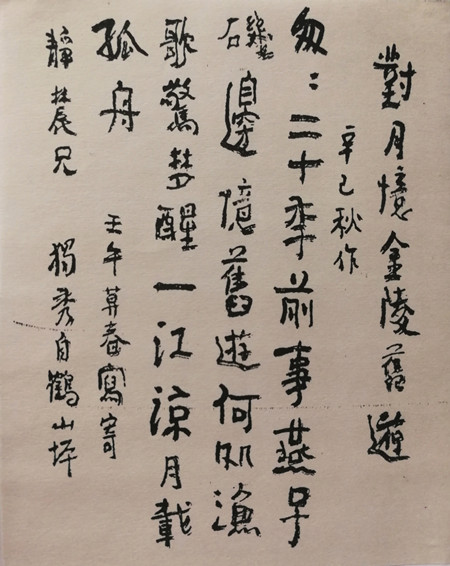 對月憶金陵舊遊
辛巳秋作
匆〻二十年前事燕子
磯邊憶舊遊何処漁
歌驚梦醒一江涼月載
孤舟
壬午莫春寫寄
靜農兄
獨秀自鶴山坪